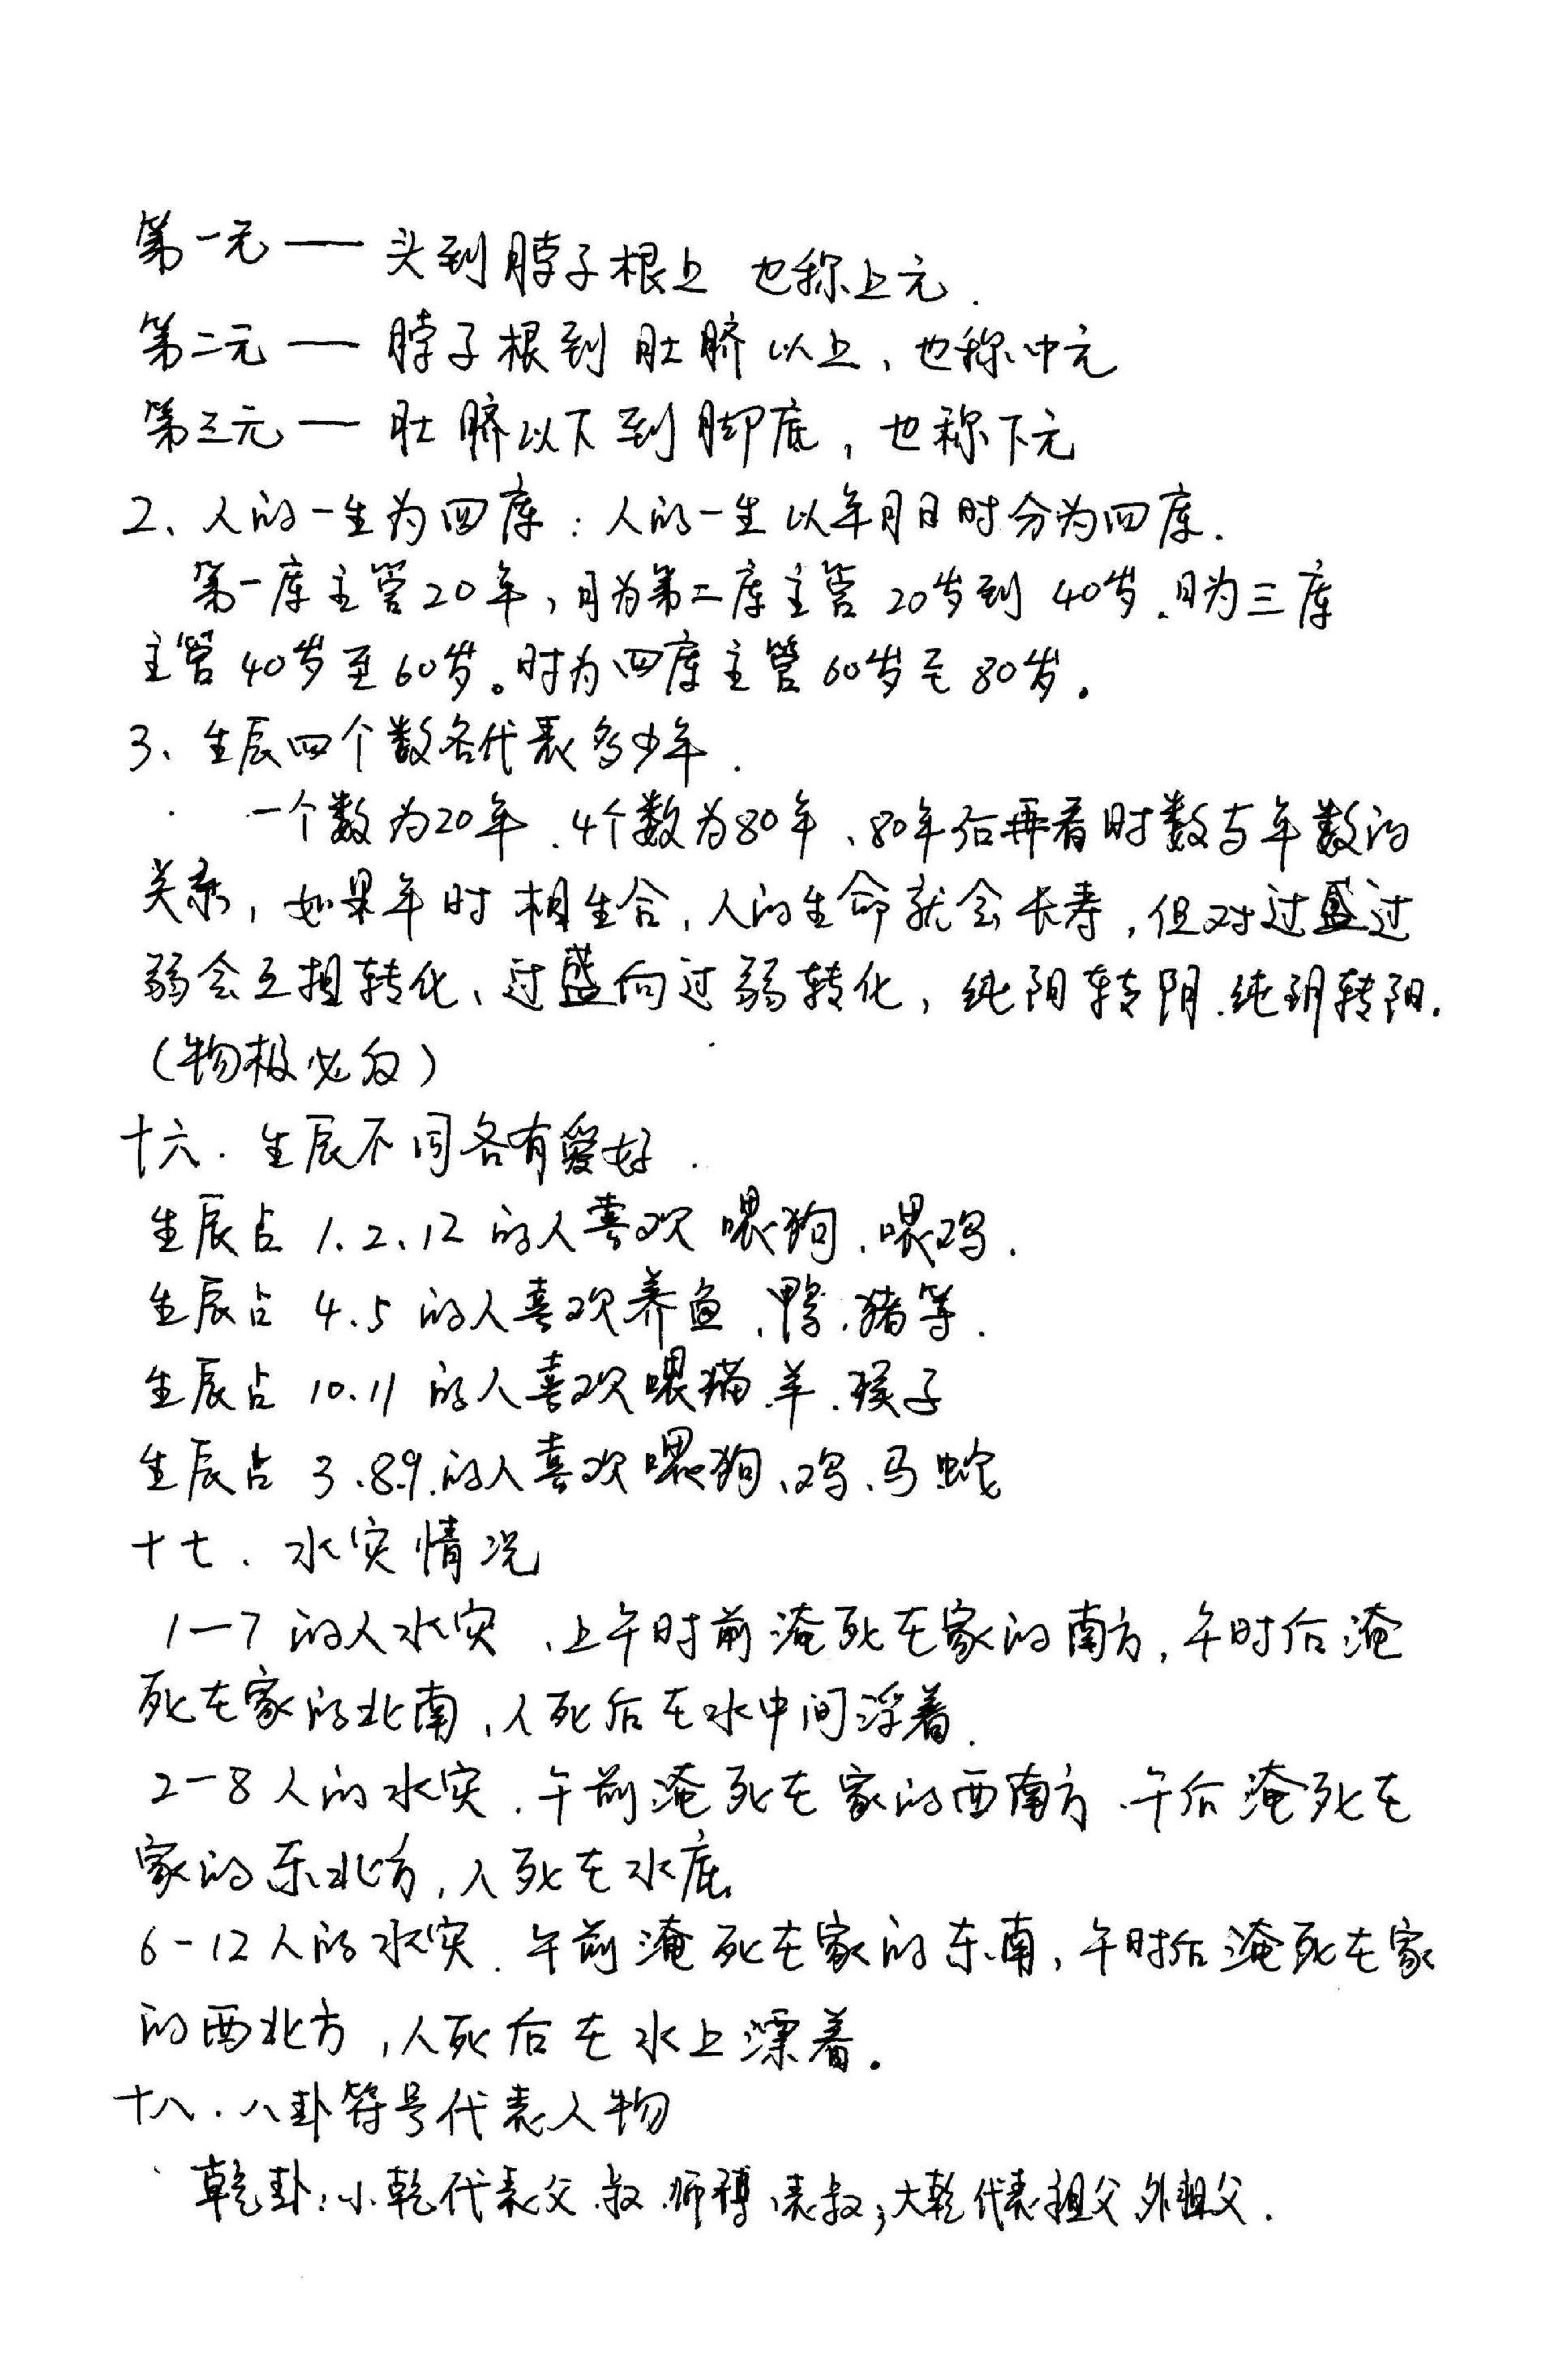 第一元 —— 头到脖子根上 也称上元.
第二元 —— 脖子根到肚脐以上、也称中元
第三元 —— 肚脐以下到脚底，也称下元
2、人的一生为四库：人的一生以年月日时分为四库.
第一库主管20年，月为第二库主管20岁到40岁.日为三库
主管40岁至60岁。时为四库主管60岁至80岁.
3、生辰四个数各代表多少年.
一个数为20年.4个数为80年、80年后再看时数与年数的
关系，如果年时相生合，人的生命就会长寿，但对过盛过
弱会互相转化、过盛向过弱转化，纯阳转阴.纯阴转阳.
（物极必反）
十六.生辰不同各有爱好.
生辰占1.2、12的人喜欢喂狗.喂鸡.
生辰占4.5的人喜欢养鱼、鸭.猪等.
生辰占10.11的人喜欢喂猫.羊.猴子
生辰占3.8.9.的人喜欢喂狗、鸡、马蛇
十七.水灾情况
1—7的人水灾、上午时前淹死在家的南方，午时后淹
死在家的北南，人死后在水中间浮着.
2—8人的水灾.午前淹死在家的西南方.午后淹死在
家的东北方，人死在水底.
6-12人的水灾.午前淹死在家的东南，午时后淹死在家
的西北方，人死后在水上漂着.
十八.八卦符号代表人物
乾卦：小乾代表父.叔.师傅、表叔；大乾代表祖父.外祖父.